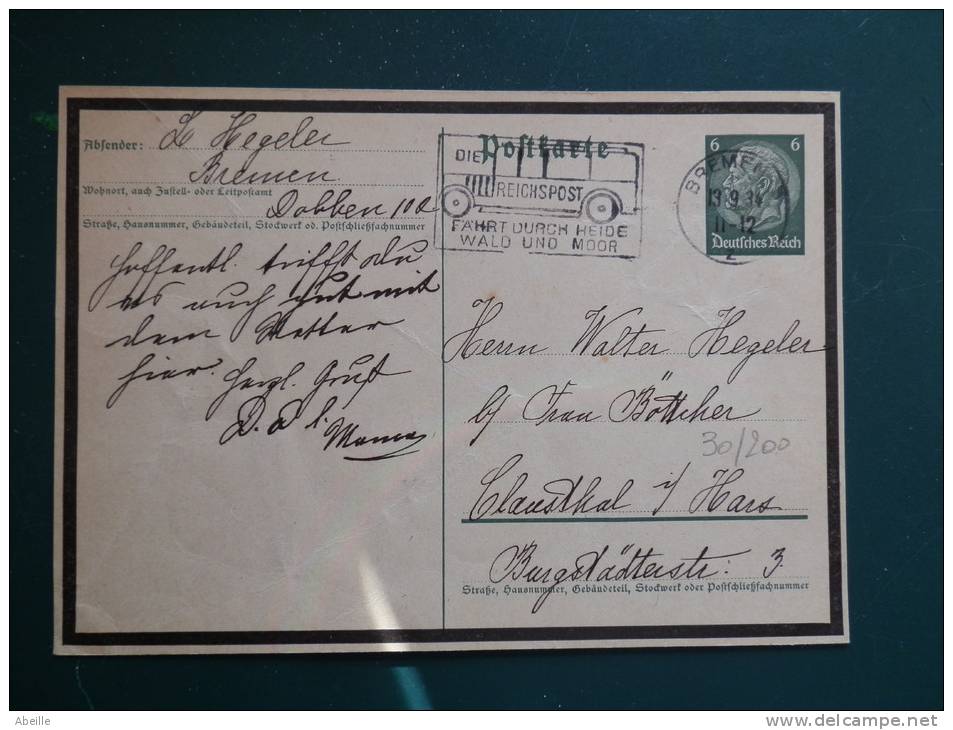 Absender: L Hegeler
Bremen
Wohnort, auch Zustell- oder Leitpostamt
Dobben 10a
Straße, Hausnummer, Gebäudeteil, Stockwerk od. Postschließfachnummer
Hoffentl. trifft du
es auch gut mit
dem Wetter
hier. Herzl. Gruß
Mama
Postkarte
DIE
REICHSPOST
FÄHRT DURCH HEIDE
WALD UND MOOR
6 6
Deutsches Reich
BREMEN
13.9.34
11-12
z
Herrn Walter Hegeler
b/ Frau Böttcher
30/200
Clausthal i/ Harz
Burgstädterstr: 3.
Straße, Hausnummer, Gebäudeteil, Stockwerk oder Postschließfachnummer
Abeille
www.delcampe.net